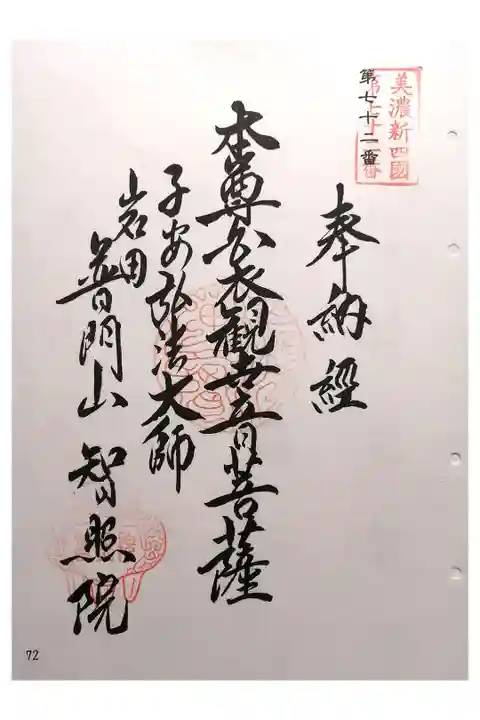 美濃新四國
第七十二番
奉納經
本尊千手観世音菩薩
子安弘法大師
岩田
普門山 智照院
72